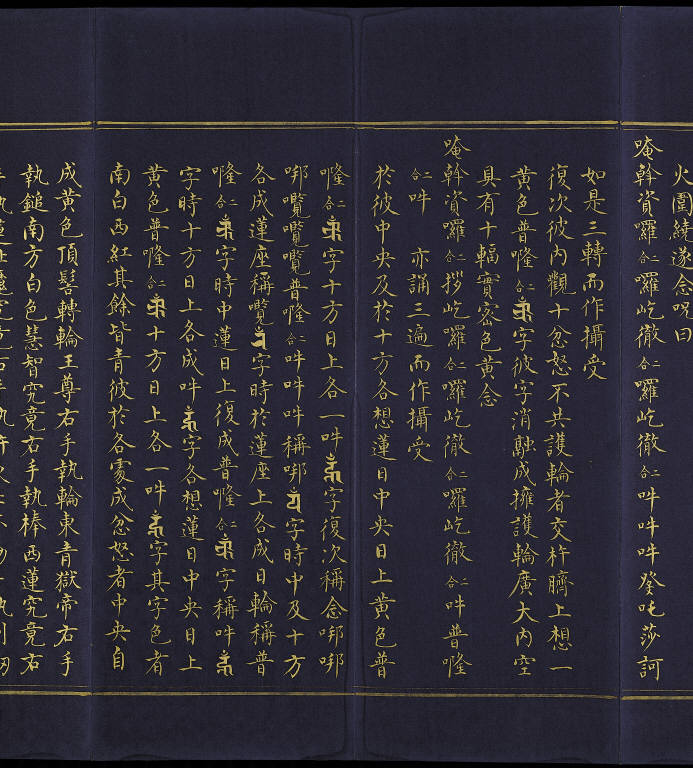 火圍繞遂念呪曰
唵斡資囉二合囉屹徹二合囉屹徹二合吽吽吽發吒莎訶
如是三轉而作攝受
復次彼內觀十忿怒不共護輪者交杵臍上想一
黃色普𠺁二合字彼字消融成擁護輪廣大內空
具有十輻實密色黃念
唵斡資囉二合拶屹囉二合囉屹徹二合囉屹徹二合吽普𠺁
二合吽 亦誦三遍而作攝受
於彼中央及於十方各想蓮日中央日上黃色普
𠺁二合字十方日上各一吽字復次稱念𠳐𠳐
𠳐㘕㘕㘕普𠺁二合吽吽吽稱𠳐字時中及十方
各成蓮座稱㘕字時於蓮座上各成日輪稱普
𠺁二合字時中蓮日上復成普𠺁二合字稱吽
字時十方日上各成吽字各想蓮日中央日上
黃色普𠺁二合十方日上各一吽字其字色者
南白西紅其餘皆青彼於各處成忿怒者中央自
成黃色頂髻轉輪王尊右手執輪東青獄帝右手
執鎚南方白色慧智究竟右手執棒西蓮究竟右